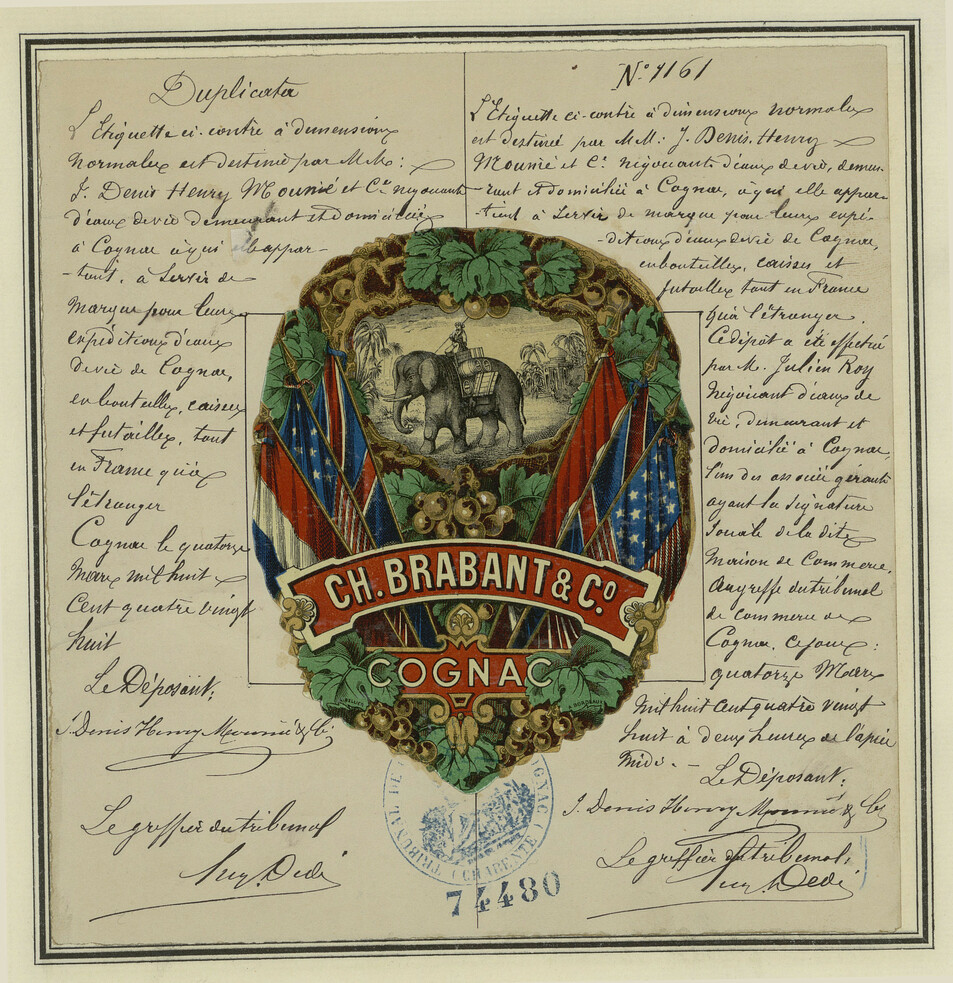 Duplicata
L'Etiquette ci-contre à dimensions
normales est destinée par M.M:
J. Denis Henry Mounié et Cie négociants
d'eaux de vie demeurant et domiciliés
à Cognac à qui elle appar-
-tient, à Servir de
marque pour leurs
expéditions d'eaux
de vie de Cognac,
en bouteilles, caisses
et futailles, tant
en France qu'à
l'étranger
Cognac le quatorze
Mars mil huit
Cent quatre vingt
huit
Le Déposant,
J. Denis Henry Mounié & Cie
Le greffier du tribunal
Aug. Dedé
No 7161
L'Etiquette ci-contre à dimensions normales
est destinée par M.M: J. Denis, Henry
Mounié et Cie négociants d'eaux de vie, demeu-
-rant et domiciliés à Cognac, à qui elle appar-
-tient à Servir de marque pour leurs expé-
-ditions d'eaux de vie de Cognac,
en bouteilles, caisses et
futailles tant en France
qu'à l'étranger.
Ce dépôt a été effectué
par M. Julien Roy
négociant d'eaux de
vie, demeurant et
domicilié à Cognac,
l'un des associés gérants
ayant la signature
Sociale de la dite
Maison de Commerce,
au greffe du tribunal
de commerce de
Cognac, ce jour:
quatorze Mars
mil huit cent quatre vingt
huit à deux heures de l'après
Midi.-
Le Déposant:
J. Denis Henry Mounié & Cie
Le greffier du tribunal:
Aug. Dedé
CH. BRABANT & Co
COGNAC
BORDEAUX
TRIBUNAL DE COGNAC (CHARENTE)
74480